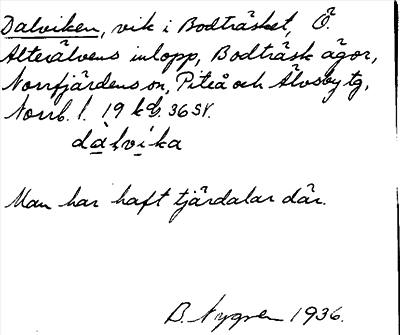 Dalviken, vik i Bodträsket, Ö.
Alterälvens inlopp, Bodträsk ägor,
Norrfjärdens sn, Piteå och Älvsby tg,
Norrb. l. 19 kb. 36 SV.
dàlvi̇ka
Man har haft tjärdalar där.
B. Nygren 1936.